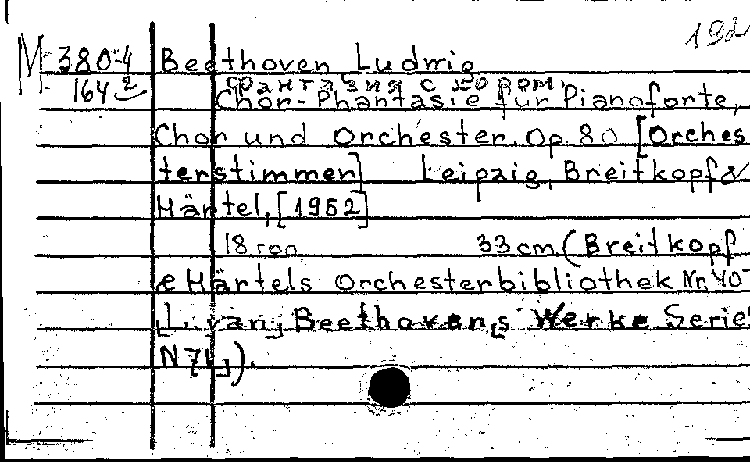 M 380-4 Beethoven Ludwig
164 2 Фантазия с хором.
Chor-Phantasie für Pianoforte,
Chor und Orchester. Op. 80 [Orches
terstimmen] Leipzig, Breitkopf &
Härtel, [1952]
18 гол 33 cm. (Breitkopf
& Härtels Orchesterbibliothek Nr. 40
[L. van] Beethoven[s Werke Serie